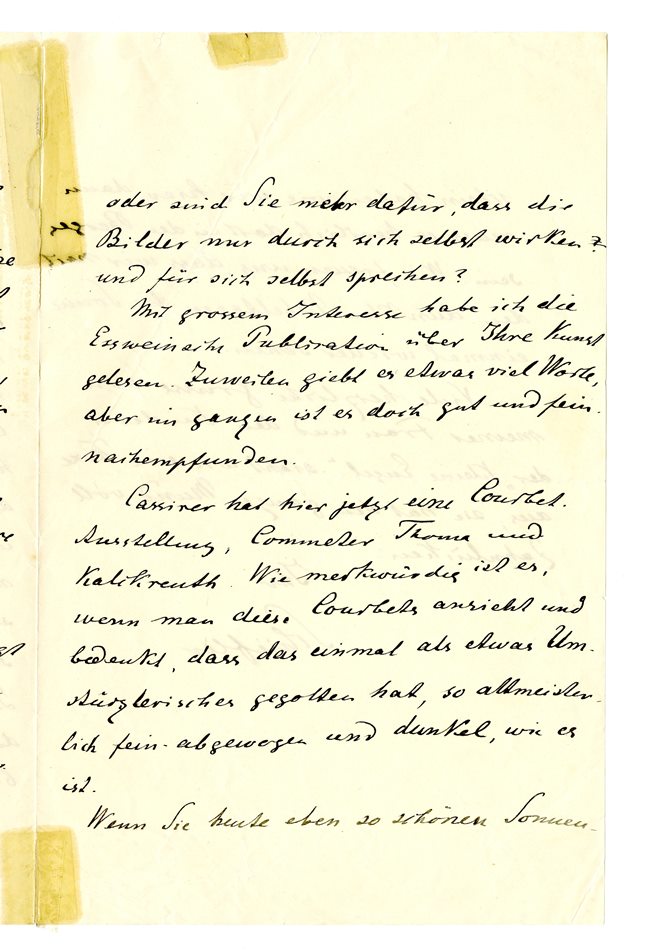 oder sind Sie mehr dafür, dass die
Bilder nur durch sich selbst wirken
und für sich selbst sprechen?
Mit grossem Interesse habe ich die
Essweinsche Publication über Ihre Kunst
gelesen. Zuweilen giebt es etwas viel Worte,
aber im ganzen ist es doch gut und fein
nachempfunden.
Cassirer hat hier jetzt eine Courbet-
Ausstellung, Commeter Thoma und
Kalkreuth. Wie merkwürdig ist es,
wenn man diese Courbets ansieht und
bedenkt, dass das einmal als etwas Um-
stürzlerisches gegolten hat, so altmeister-
lich fein-abgewogen und dunkel, wie es
ist.
Wenn Sie heute eben so schönen Sonnen-